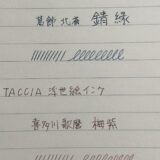 葛飾北斎 錆緑
TACCIA 浮世絵インク
喜多川歌麿 梅紫